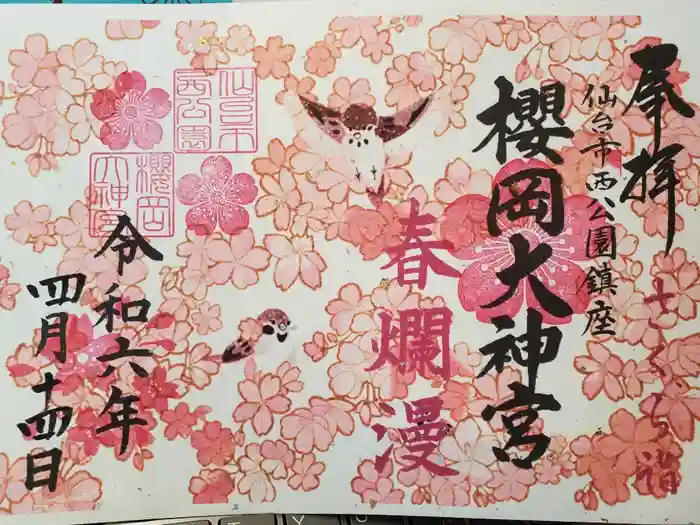 奉拝
さくら詣
仙台市西公園鎮座
櫻岡大神宮
春爛漫
仙台市
西公園
櫻岡
大神宮
令和六年
四月十四日